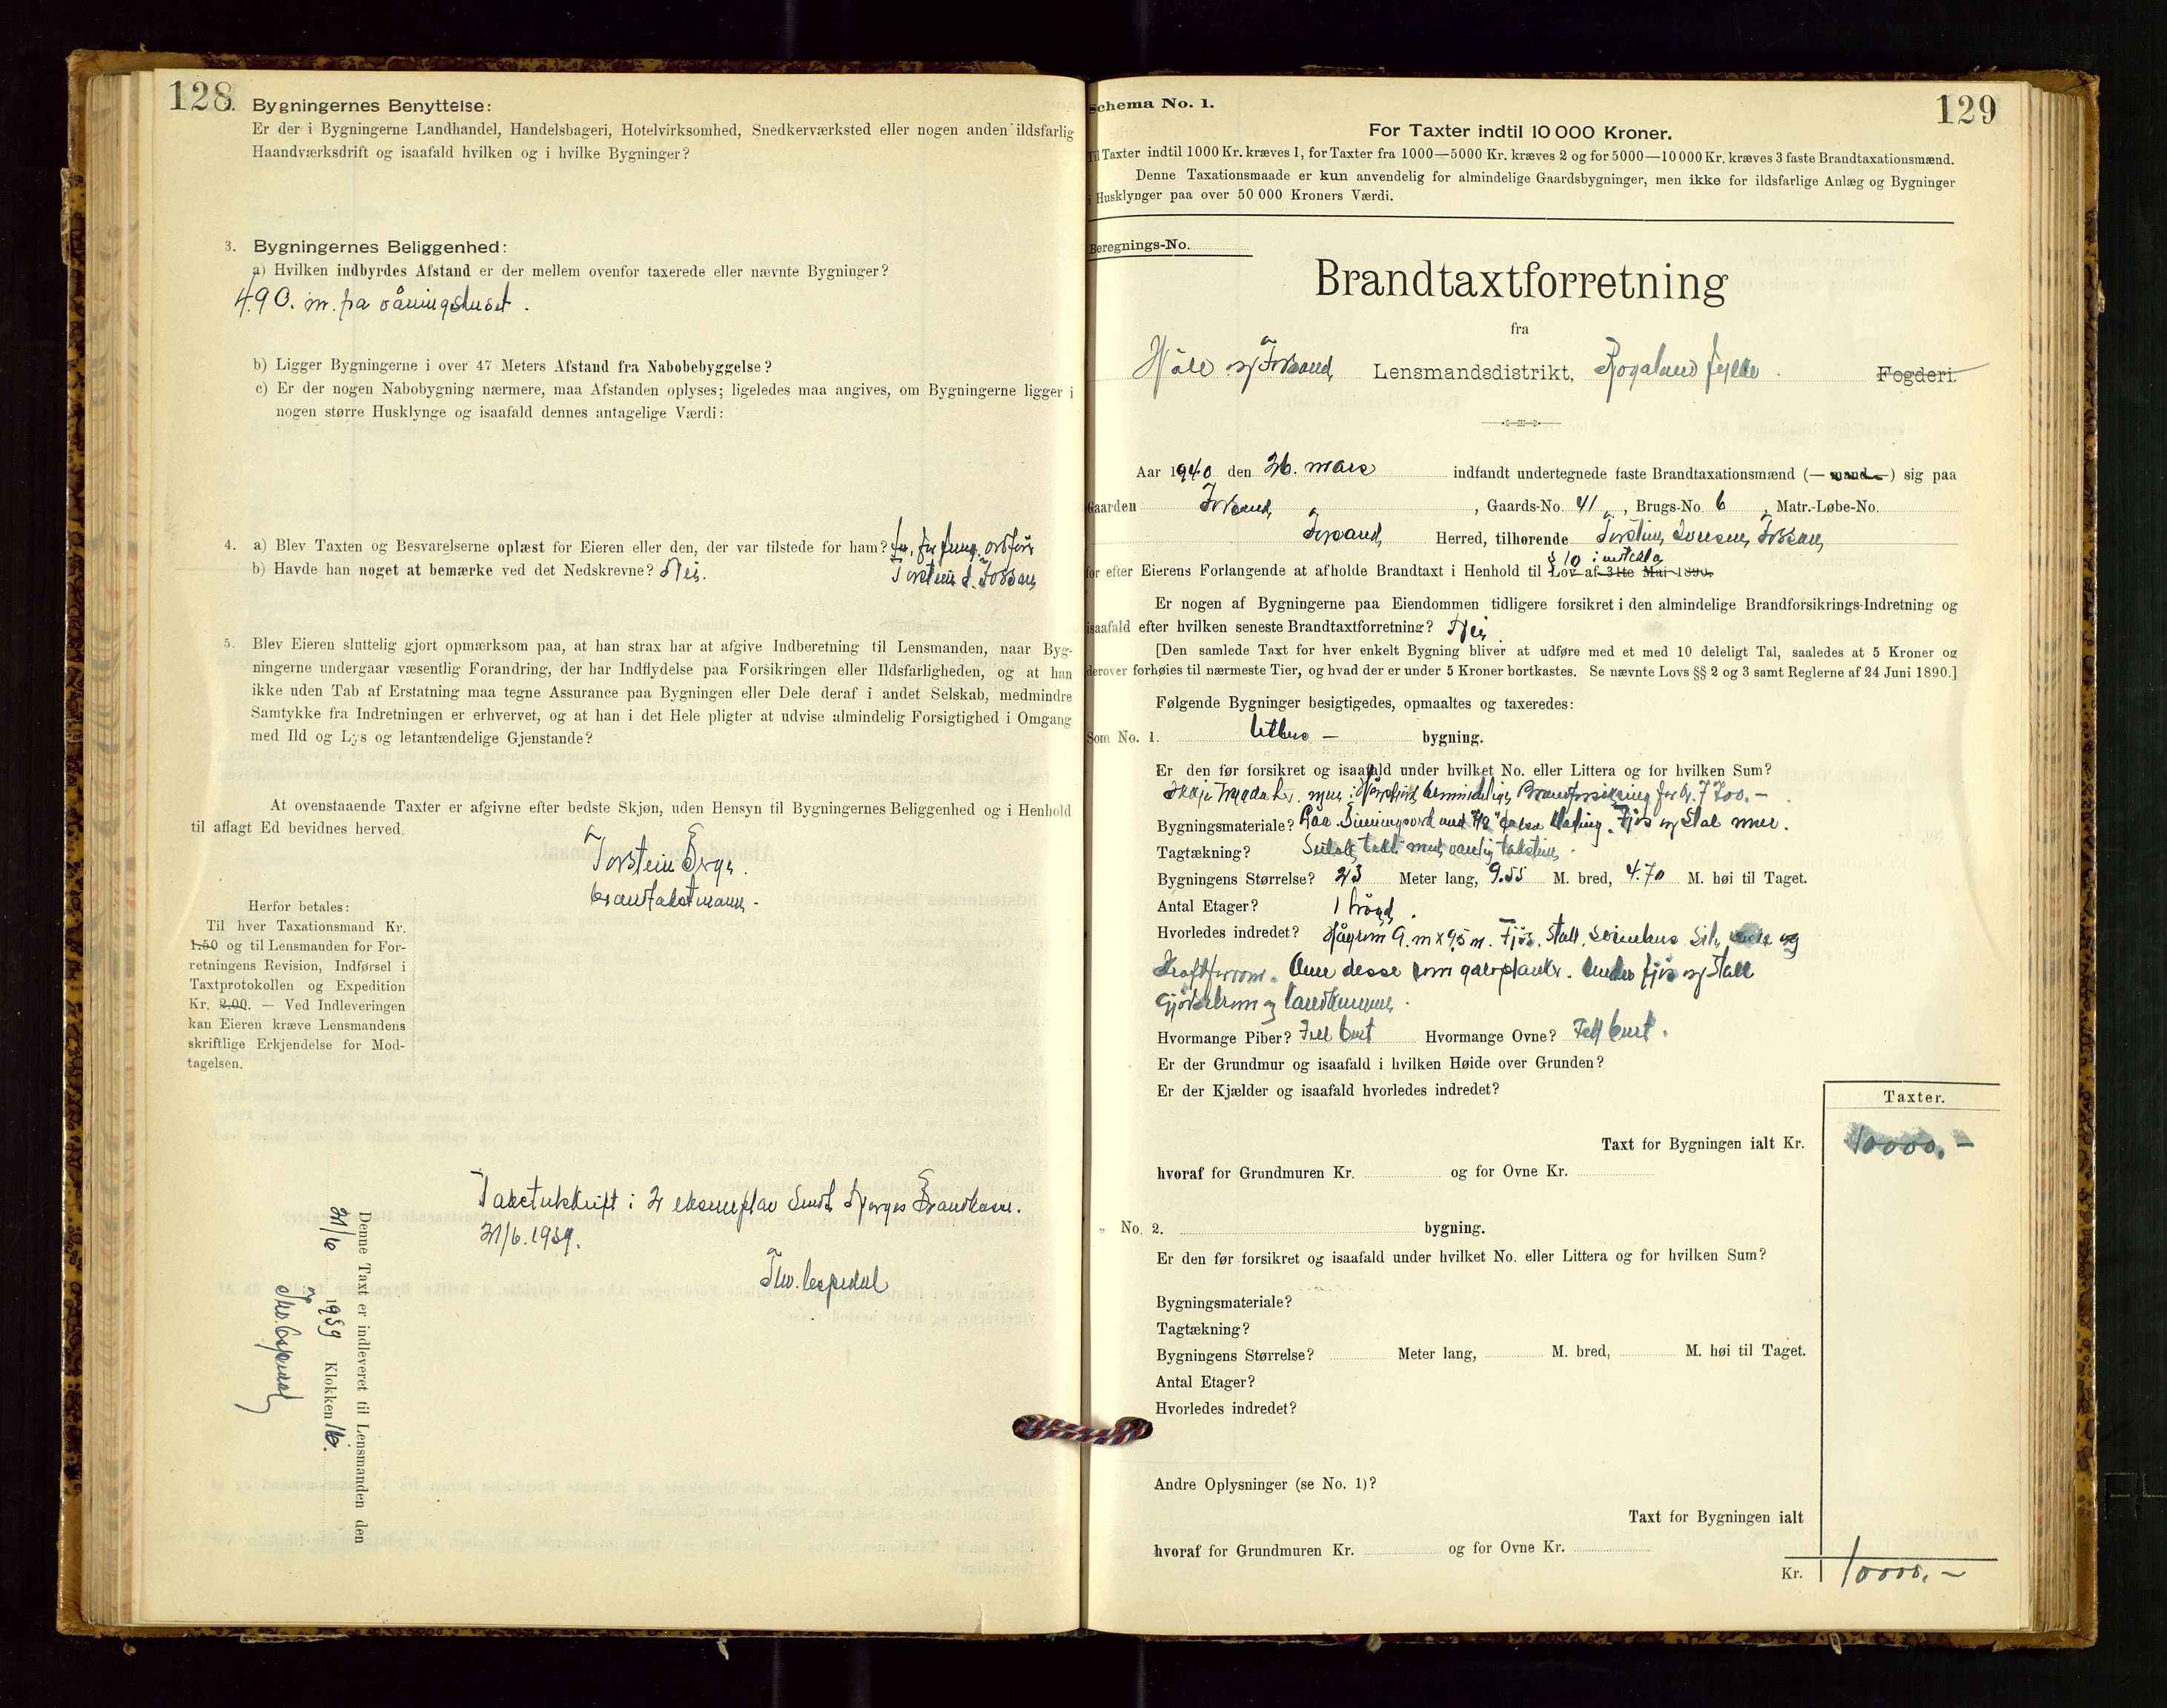 128
Bygningernes Benyttelse:
Er der i Bygningerne Landhandel, Handelsbageri, Hotelvirksomhed, Snedkerværksted eller nogen anden ildsfarlig
Haandværksdrift og isaafald hvilken og i hvilke Bygninger?
3. Bygningernes Beliggenhed:
a) Hvilken indbyrdes Afstand er der mellem ovenfor taxerede eller nævnte Bygninger?
490. m. fra våningshuset.
b) Ligger Bygningerne i over 47 Meters Afstand fra Nabobebyggelse?
c) Er der nogen Nabobygning nærmere, maa Afstanden oplyses; ligeledes maa angives, om Bygningerne ligger i
nogen større Husklynge og isaafald dennes antagelige Værdi:
4. a) Blev Taxten og Besvarelserne oplæst for Eieren eller den, der var tilstede for ham?
b) Havde han noget at bemærke ved det Nedskrevne? Nei. Torstein S. Fossan
5. Blev Eieren sluttelig gjort opmærksom paa, at han strax har at afgive Indberetning til Lensmanden, naar Byg-
ningerne undergaar væsentlig Forandring, der har Indflydelse paa Forsikringen eller Ildsfarligheden, og at han
ikke uden Tab af Erstatning maa tegne Assurance paa Bygningen eller Dele deraf i andet Selskab, medmindre
Samtykke fra Indretningen er erhvervet, og at han i det Hele pligter at udvise almindelig Forsigtighed i Omgang
med Ild og Lys og letantændelige Gjenstande?
At ovenstaaende Taxter er afgivne efter bedste Skjøn, uden Hensyn til Bygningernes Beliggenhed og i Henhold
til aflagt Ed bevidnes herved.
Torstein Berge.
brandtakstmann.
Herfor betales:
Til hver Taxationsmand Kr.
1.50 og til Lensmanden for For-
retningens Revision, Indførsel i
Taxtprotokollen og Expedition
Kr. 2.00. — Ved Indleveringen
kan Eieren kræve Lensmandens
skriftlige Erkjendelse for Mod-
tagelsen.
Takstutskrift i 2 eksemplar sendt Norges Brandkasse.
21/6.1939.
Thv. Espedal
Denne Taxt er indleveret til Lensmanden den
21/6 1939 Klokken 16.
Thv. Espedal
Schema No. 1.
129
For Taxter indtil 10 000 Kroner.
Til Taxter indtil 1000 Kr. kræves 1, for Taxter fra 1000—5000 Kr. kræves 2 og for 5000—10 000 Kr. kræves 3 faste Brandtaxationsmænd.
Denne Taxationsmaade er kun anvendelig for almindelige Gaardsbygninger, men ikke for ildsfarlige Anlæg og Bygninger
i Husklynger paa over 50 000 Kroners Værdi.
Beregnings-No.
Brandtaxtforretning
fra
Høle og Forsand Lensmandsdistrikt, Rogaland fylke. Fogderi.
Aar 1940 den 26. mars indfandt undertegnede faste Brandtaxationsmænd (— mand —) sig paa
Gaarden , Gaards-No. 41, Brugs-No. 6, Matr.-Løbe-No.
Forsand Herred, tilhørende Torstein
§ 10 i
for efter Eierens Forlangende at afholde Brandtaxt i Henhold til Lov af 31te Mai 1890.
Er nogen af Bygningerne paa Eiendommen tidligere forsikret i den almindelige Brandforsikrings-Indretning og
isaafald efter hvilken seneste Brandtaxtforretning? Nei.
[Den samlede Taxt for hver enkelt Bygning bliver at udføre med et med 10 deleligt Tal, saaledes at 5 Kroner og
derover forhøies til nærmeste Tier, og hvad der er under 5 Kroner bortkastes. Se nævnte Lovs §§ 2 og 3 samt Reglerne af 24 Juni 1890.]
Følgende Bygninger besigtigedes, opmaaltes og taxeredes:
Som No. 1. Uthus — bygning.
Er den før forsikret og isaafald under hvilket No. eller Littera og for hvilken Sum?
for kr. 7700.—
Bygningsmateriale? og Stal mur.
Tagtækning? tekt med vanlig takstein.
Bygningens Størrelse? 23 Meter lang, 9.55 M. bred, 4.70 M. høi til Taget.
Antal Etager? 1
Hvorledes indredet? Høyrom 9. m x 9.5 m. Fjøs, Stall, og
Kraftforrom. Over desse rom Under fjøs og Stall
Gjødselrum og landkummer.
Hvormange Piber? Fell burt Hvormange Ovne? Fell burt.
Er der Grundmur og isaafald i hvilken Høide over Grunden?
Er der Kjælder og isaafald hvorledes indredet?
Taxter.
Taxt for Bygningen ialt Kr. 10000.—
hvoraf for Grundmuren Kr. og for Ovne Kr.
„ No. 2. bygning.
Er den før forsikret og isaafald under hvilket No. eller Littera og for hvilken Sum?
Bygningsmateriale?
Tagtækning?
Bygningens Størrelse? Meter lang, M. bred, M. høi til Taget.
Antal Etager?
Hvorledes indredet?
Andre Oplysninger (se No. 1)?
Taxt for Bygningen ialt
hvoraf for Grundmuren Kr. og for Ovne Kr.
Kr. 10000.—